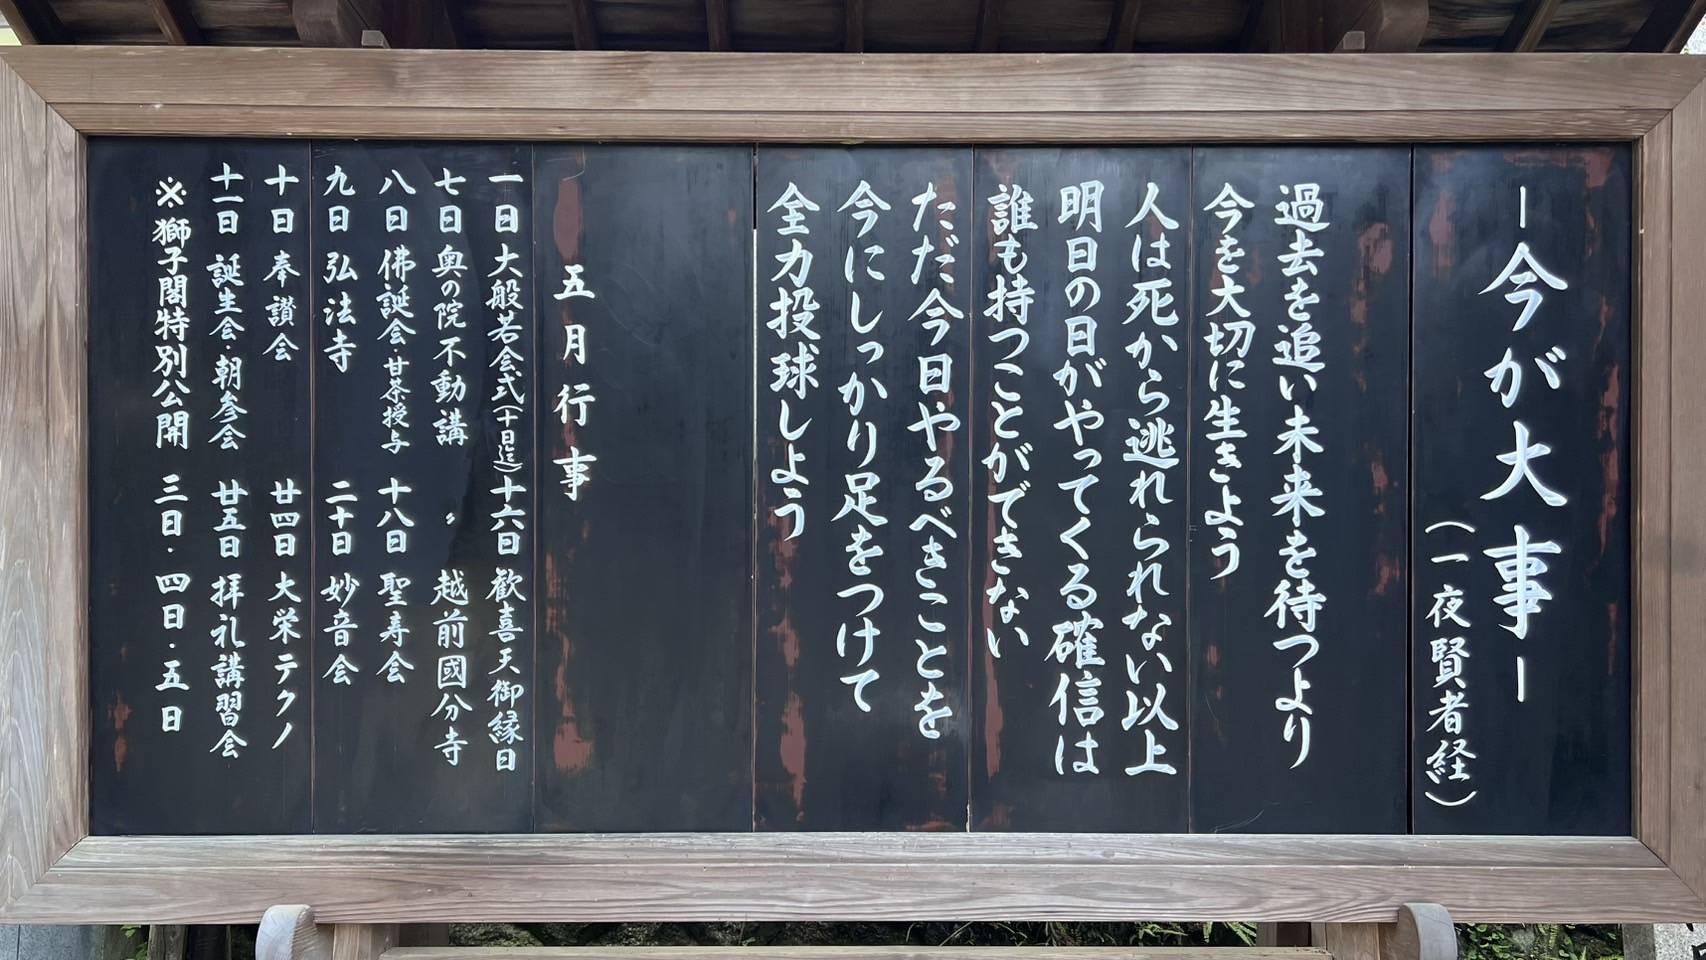 －今が大事－
（一夜賢者経）
過去を追い未来を待つより
今を大切に生きよう
人は死から逃れられない以上
明日の日がやってくる確信は
誰も持つことができない
ただ今日やるべきことを
今にしっかり足をつけて
全力投球しよう
五月行事
一日 大般若会式（十日迄）
七日 奥の院不動講
八日 佛誕会・甘茶授与
九日 弘法寺
十日 奉讃会
十一日 誕生会・朝参会
十六日 歓喜天御縁日
〃 越前國分寺
十八日 聖寿会
二十日 妙音会
廿四日 大栄テクノ
廿五日 拝礼講習会
※獅子閣特別公開 三日・四日・五日